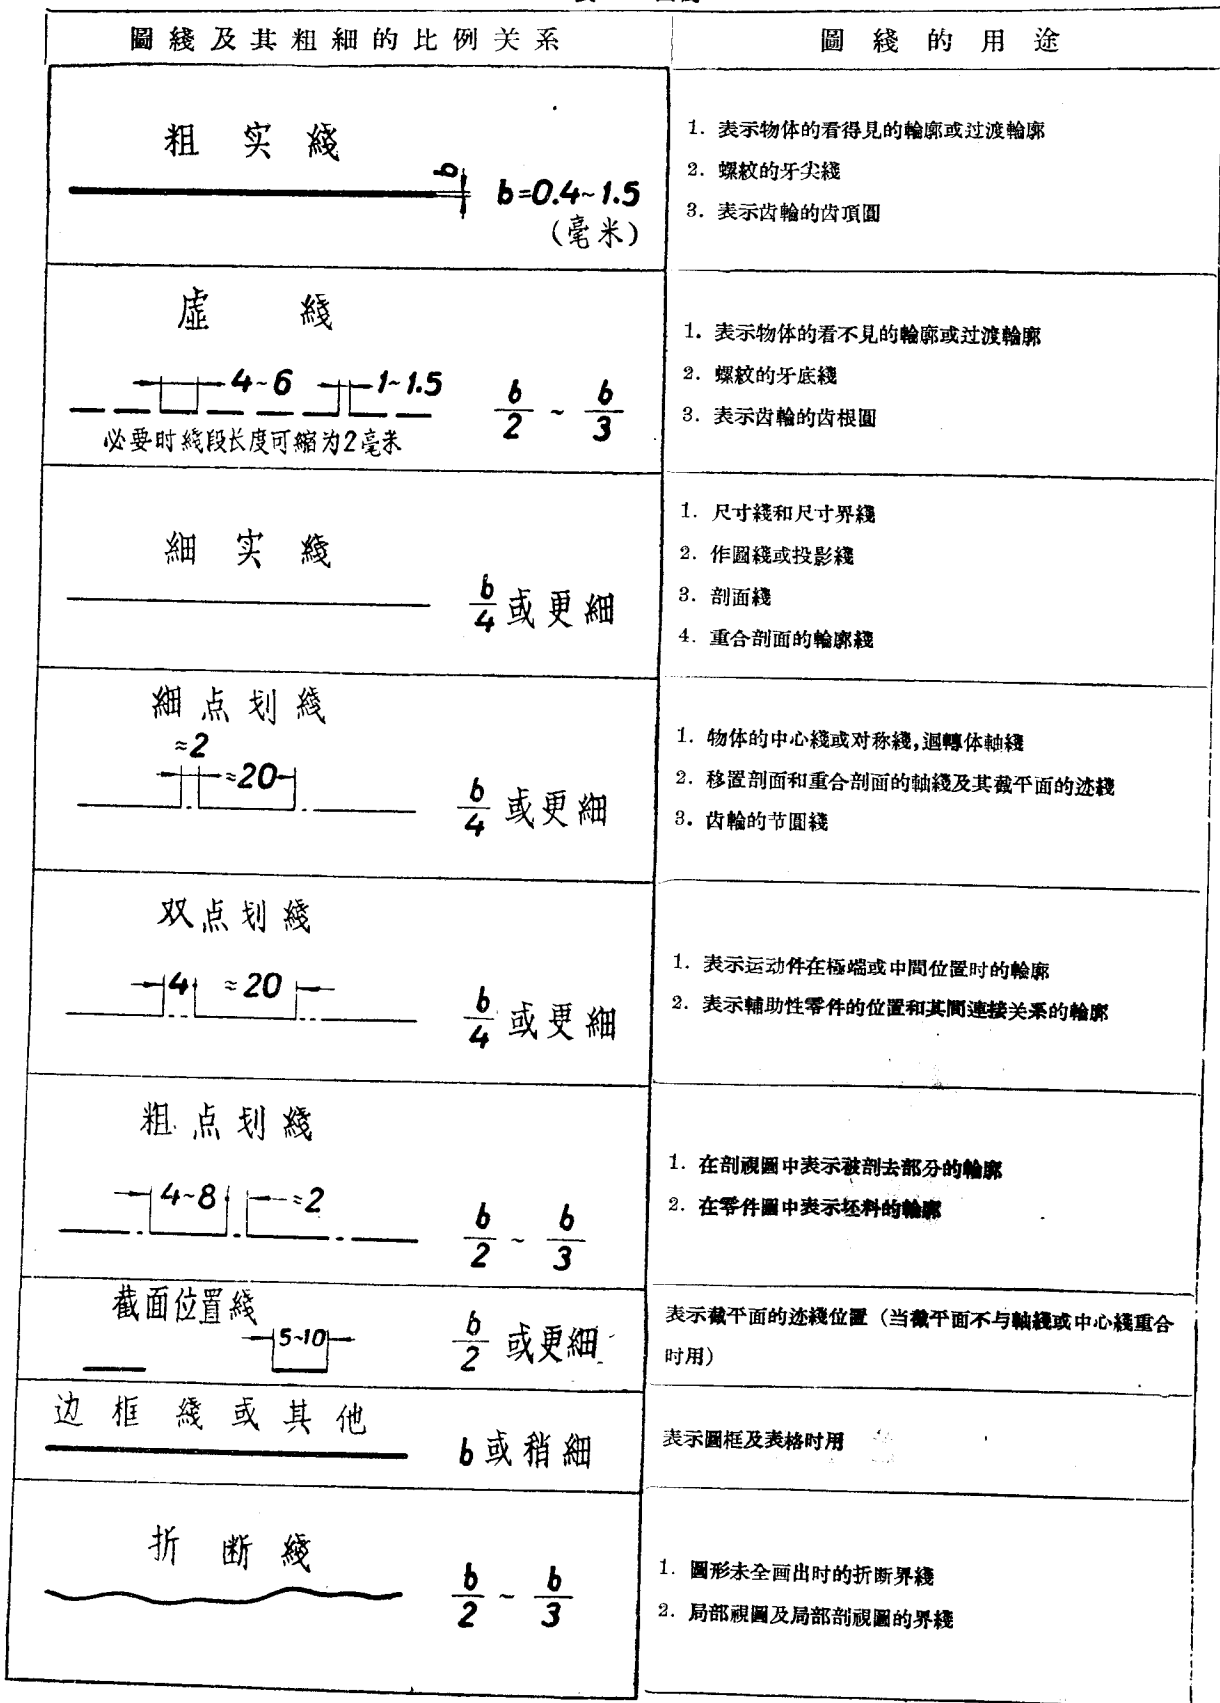 圖綫及其粗細的比例关系
圖綫的用途
粗实綫
b
b=0.4~1.5
(毫米)
1. 表示物体的看得見的輪廓或过渡輪廓
2. 螺紋的牙尖綫
3. 表示齿輪的齿頂圓
虛綫
4~6
1~1.5
b/2 ~ b/3
必要时綫段长度可縮为2毫米
1. 表示物体的看不見的輪廓或过渡輪廓
2. 螺紋的牙底綫
3. 表示齿輪的齿根圓
細实綫
b/4 或更細
1. 尺寸綫和尺寸界綫
2. 作圖綫或投影綫
3. 剖面綫
4. 重合剖面的輪廓綫
細点划綫
≈2
≈20
b/4 或更細
1. 物体的中心綫或对称綫,迴轉体軸綫
2. 移置剖面和重合剖面的軸綫及其截平面的迹綫
3. 齿輪的节圓綫
双点划綫
4
≈20
b/4 或更細
1. 表示运动件在極端或中間位置时的輪廓
2. 表示輔助性零件的位置和其間連接关系的輪廓
粗点划綫
4~8
≈2
b/2 ~ b/3
1. 在剖視圖中表示被剖去部分的輪廓
2. 在零件圖中表示坯料的輪廓
截面位置綫
5~10
b/2 或更細
表示截平面的迹綫位置（当截平面不与軸綫或中心綫重合
时用）
边框綫或其他
b或稍細
表示圖框及表格时用
折断綫
b/2 ~ b/3
1. 圖形未全画出时的折断界綫
2. 局部視圖及局部剖視圖的界綫